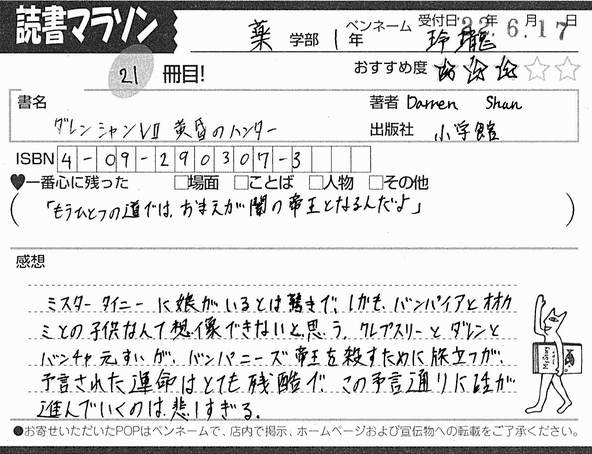 読書マラソン
薬 学部 1年 ペンネーム 玲瓏 受付日 22年6月17日
21 冊目! おすすめ度 ★★★☆☆
書名 著者 Darren Shan
ダレン シャン VII 黄昏のハンター 出版社 小学館
ISBN 4-09-290307-3
♥一番心に残った □場面 □ことば □人物 □その他
(「もうひとつの道では、おまえが闇の帝王となるんだよ」)
感想
ミスター タイニー に娘がいるとは驚きで、しかも、バンパイアとオオカ
ミとの子供なんて想像できないと思う。クレプスリーとダレンと
バンチャ元すいが、バンパニーズ帝王を殺すために旅立つが、
予言された運命はとても残酷で、この予言通りに話が
進んでいくのは悲しすぎる。
●お寄せいただいたPOPはペンネームで、店内で掲示、ホームページおよび宣伝物への転載をご了承ください。